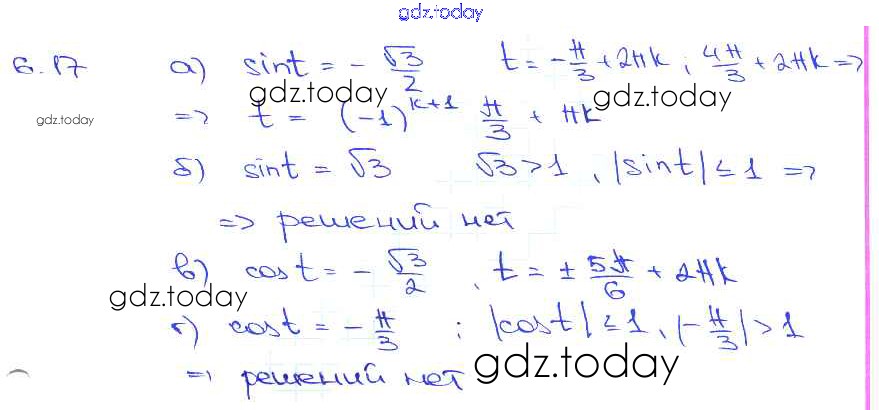 gdz.today
6.17 а) sin t = - √3/2 t = - π/3 + 2πk ; 4π/3 + 2πk =>
gdz.today gdz.today
gdz.today => t = (-1)^{k+1} π/3 + πk
б) sin t = √3 √3 > 1 , |sin t| ≤ 1 =>
=> решений нет
в) cos t = - √3/2 , t = ± 5π/6 + 2πk
gdz.today
г) cos t = - π/3 ; |cos t| ≤ 1 , |- π/3| > 1
=> решений нет gdz.today